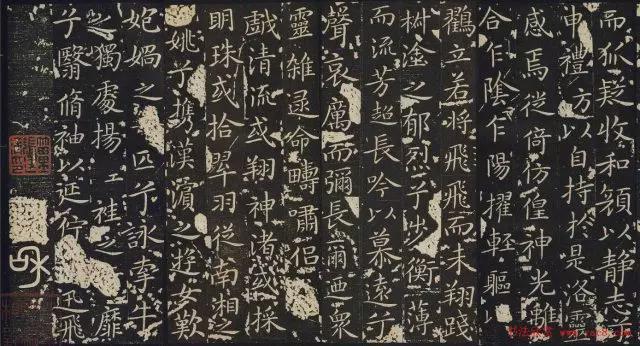 而狐疑收和顏以静志
申禮方以自持於是洛靈
感焉徙倚彷徨神光離
合乍陰乍陽擢輕軀以
鸛立若將飛飛而未翔踐
椒塗之郁烈兮步衡薄
而流芳超長吟以慕遠兮
聲哀厲而彌長爾迺衆
靈雜遝命疇嘯侶
戲清流或翔神渚或採
明珠或拾翠羽從南湘之
姚兮攜漢濱之遊女歎
媧之匹兮詠牽牛
之獨處揚袿之靡
兮翳脩袖以延佇迅飛